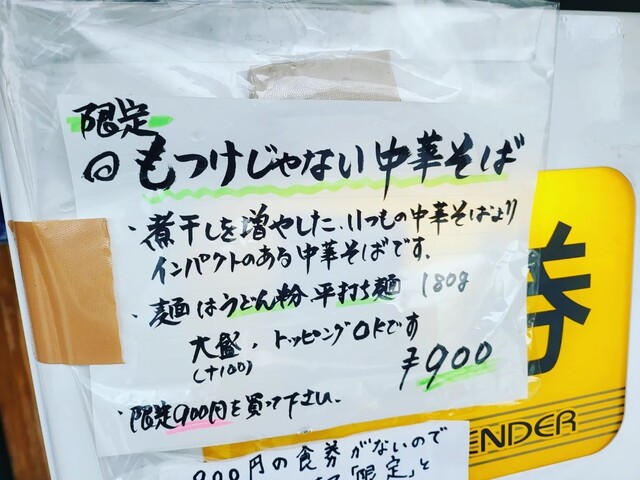 限定
◎もつけじゃない中華そば
・煮干しを増やした、いつもの中華そばより
インパクトのある中華そばです。
・麺はうどん粉 平打ち麺 180g
大盛、トッピングOKです
(+100)
¥900
・限定900円を買って下さい。
900円の食券がないので
「限定」と
券
ENDER